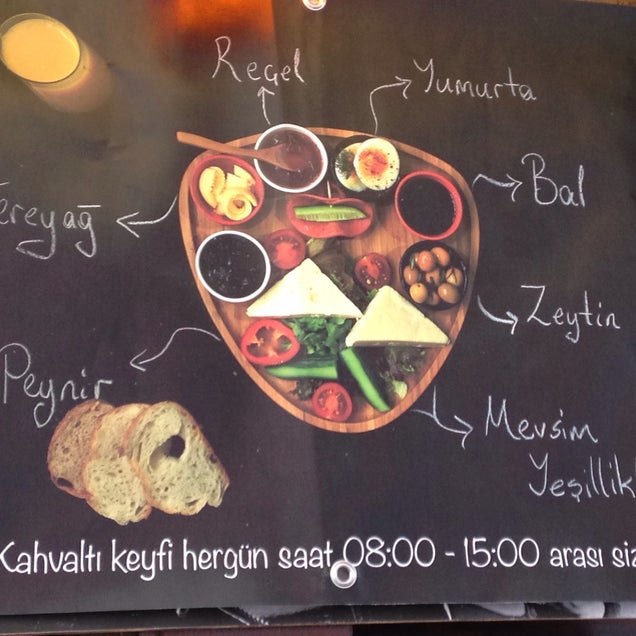 Reçel
Yumurta
Bal
Tereyağ
Zeytin
Peynir
Mevsim
Yeşillik
Kahvaltı keyfi hergün saat 08:00 - 15:00 arası